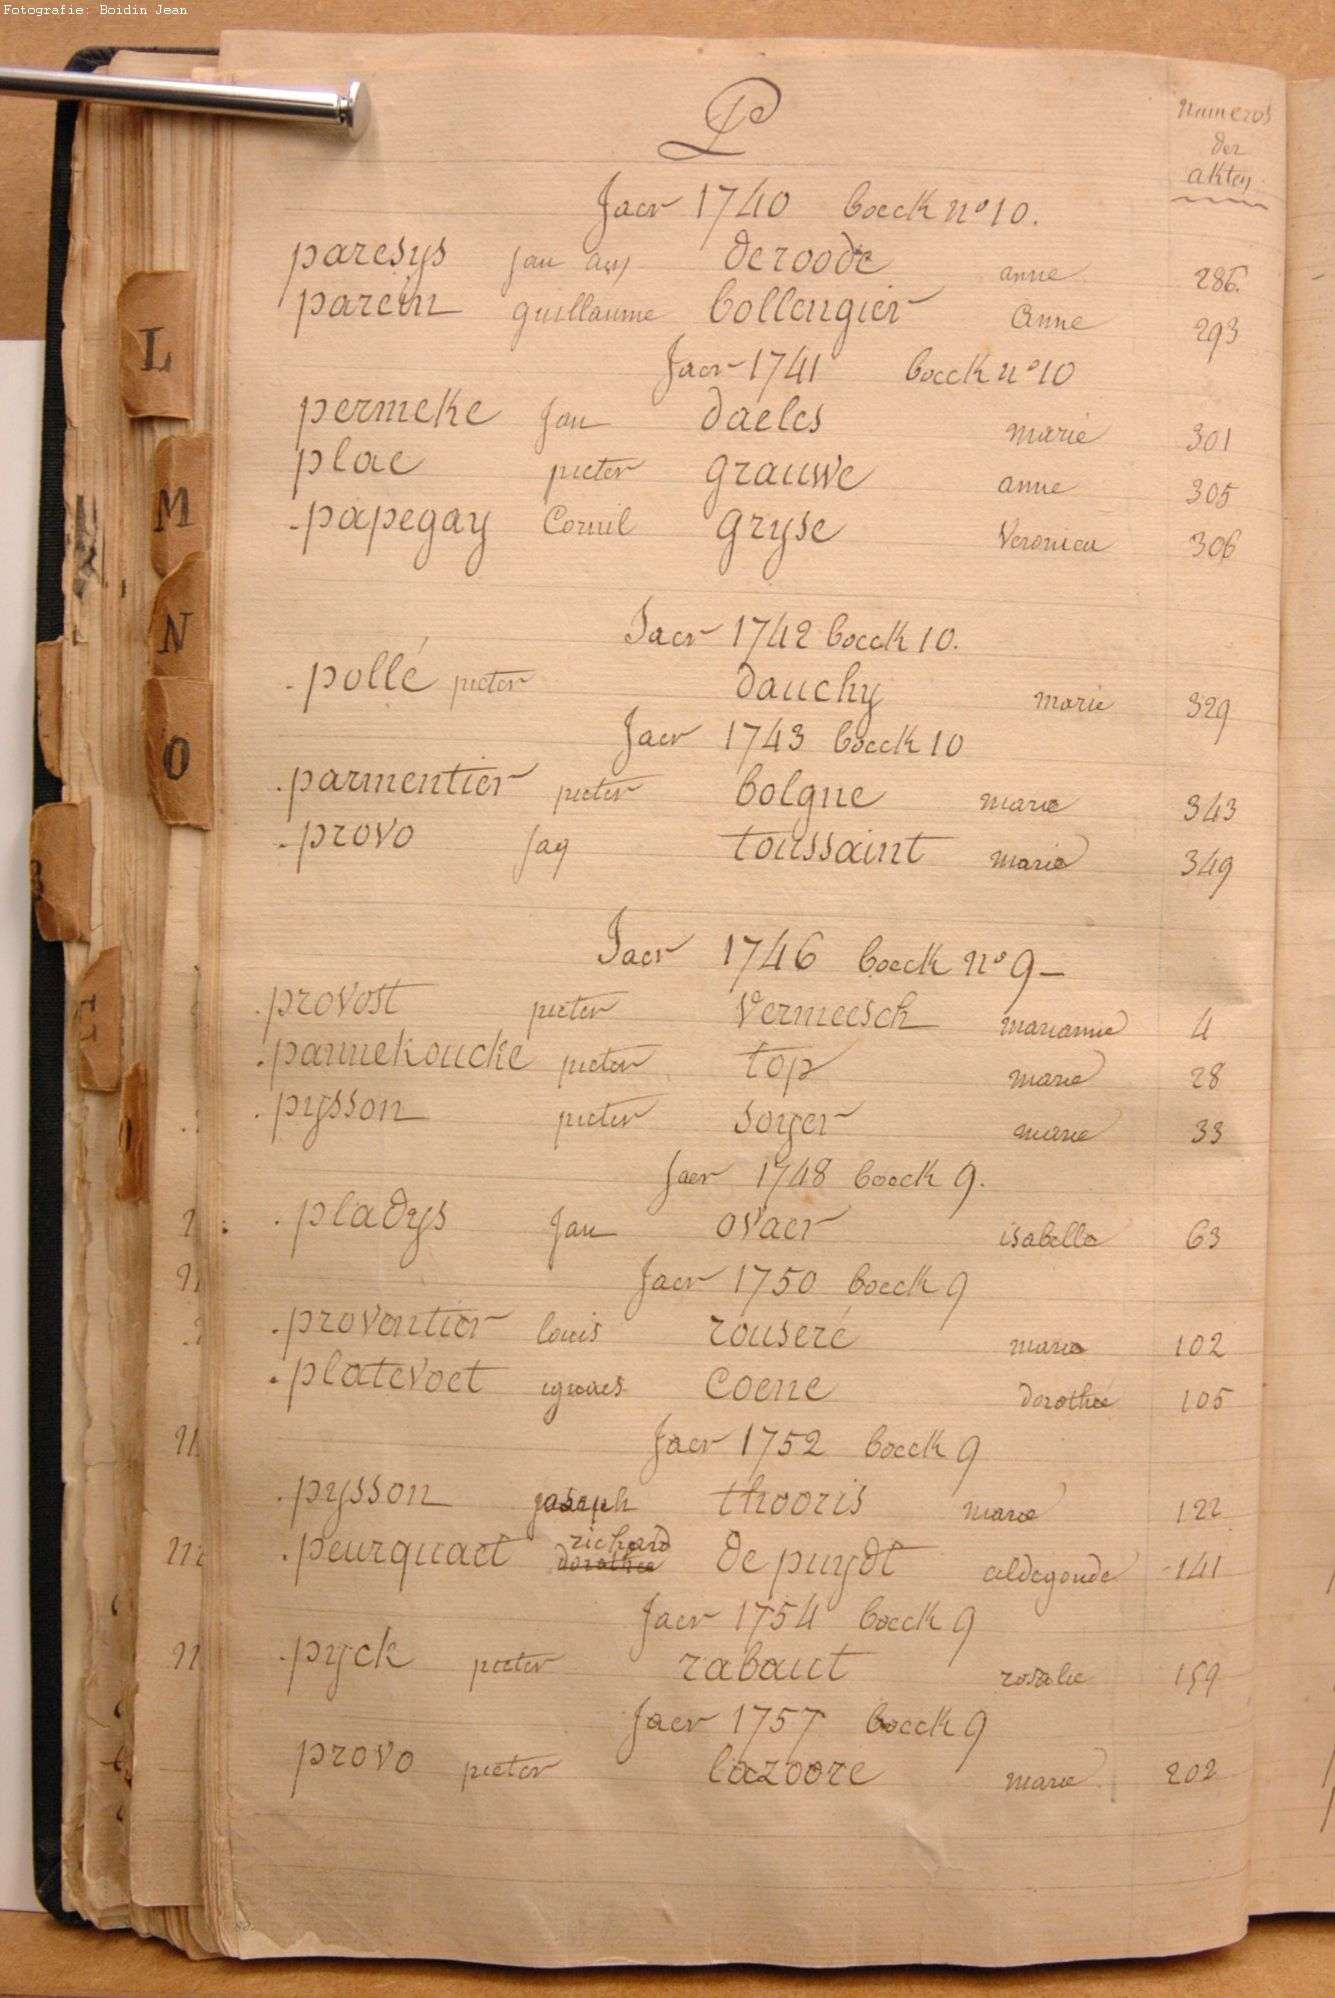 Fotografie: Boidin Jean
P
Numeros
der
akten
Jaer 1740 boeck n° 10.
paresys jan deroode anne 286.
parein guillaume bollengier Anne 293
Jaer 1741 boeck n° 10
permeke jan daeles marie 301
plae pieter grauwe anne 305
-papegay Cornil gryse Veronica 306
Jaer 1742 boeck 10.
-pollé pieter dauchy marie 329
Jaer 1743 boeck 10
.parmentier pieter bolgne marie 343
-provo jaq toussaint marie 349
Jaer 1746 boeck n° 9-
.provost pieter vermeesch marianne 4
.pannekoucke pieter top marie 28
.pysson pieter soyer marie 33
Jaer 1748 boeck 9.
.pladys jan ovaer isabelle 63
Jaer 1750 boeck 9
.proventier louis rouseré marie 102
.platevoet ignaes Coene dorothée 105
Jaer 1752 boeck 9
.pysson joseph thooris marie 122
richard
.peurquaet dorothée de puydt aldegonde -141
Jaer 1754 boeck 9
.pyck pieter rabaut rosalie 159
Jaer 1757 boeck 9
provo pieter lazoore marie 202
L
M
N
O